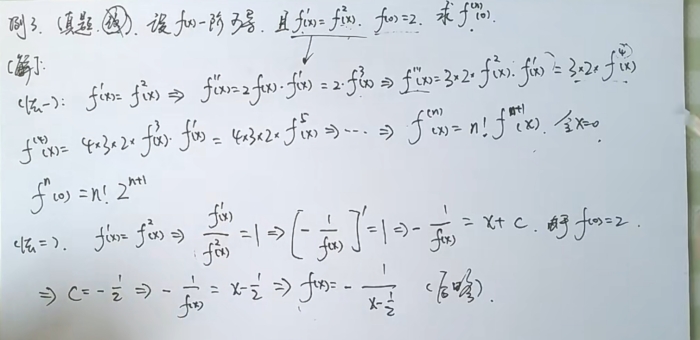 例3. (真题, 级). 设f(x)一阶可导, 且f'(x)=f²(x). f(0)=2. 求f⁽ⁿ⁾(0).
[解]:
(法一): f'(x)=f²(x) ⇒ f''(x)=2f(x)·f'(x)=2·f³(x) ⇒ f'''(x)=3×2×f²(x)·f'(x)=3×2×f⁴(x)
f⁽⁴⁾(x)=4×3×2×f³(x)·f'(x)=4×3×2×f⁵(x) ⇒ ··· ⇒ f⁽ⁿ⁾(x)=n! fⁿ⁺¹(x). 令x=0
fⁿ(0)=n! 2ⁿ⁺¹
(法二). f'(x)=f²(x) ⇒ f'(x)/f²(x)=1 ⇒ [-1/f(x)]'=1 ⇒ -1/f(x)=x+C. 由于f(0)=2.
⇒ C=-1/2 ⇒ -1/f(x)=x-1/2 ⇒ f(x)=-1/(x-1/2) (后略).